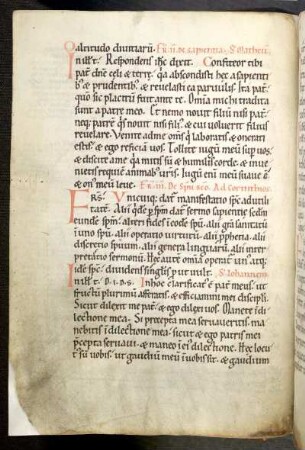 O altitudo divitiarũ. Fr̃. ii. de sapientia. S. Matheũ
In illt̃. Respondens ihc̃ dixit. Confiteor tibi
pat̃ dñe cęli & terrę. qa abscondisti hęc a sapientib;
& prudentib;. & revelasti ea parvulis. Ita pat̃
quo sic placitũ fuit ante te. Omia michi tradita
sunt a patre meo. Et nemo novit filiũ nisi pat̃.
neq; patrẽ q̃s novit nisi filꝰ. & cui voluerit filius
revelare. Venite ad me om̃s q̃ laboratis & onerati
estis. & ego reficiã vos. Tollite iugũ meũ sup vos.
& discite a me qa mitis sũ & humilis corde. & invenietis
requiẽ animab; vr̃is. Iugũ enĩ meũ suave ẽ.
& on᷒ meũ leve. Fr̃. iii. De spũ sc̃o. Ad Corinthios.
FRS̃. Unicuiq; datur̃ manifestatio spc̃ ad utilitatẽ.
Alii qdẽ p spm̃ dat̃ sermo sapientię
eundẽ spm̃. Alteri fides ĩ eodẽ spũ. Alii gr̃a sanitatũ
ĩ uno spũ. Alii operatio virtutũ. Alii ꝓphetia. Alii
discretio spirituũ. Alii genera linguarũ. Alii interpretatio
sermonũ. Hęc aut̃ omia operat̃ un᷒ atq;
idẽ spc̃. dividens singlis put vult. S. Iohannem
In illt̃. D. I. D. S. In hoc clarificat᷒ ẽ pat̃ meus. ut
fructũ plurimũ afferatis. & efficiamini mei discipli.
Sicut dilexit me pat̃. & ego dilexi vos. Manete ĩ dilectione
mea. Si pręcepta mea servaveritis. manebitis
ĩ dilectione mea. sicut & ego patris mei
pręcepta servavi. & maneo ĩ ei᷒ dilectione. Hęc locut᷒
sũ vobis. ut gaudiũ meũ ĩ vobis sit. & gaudium